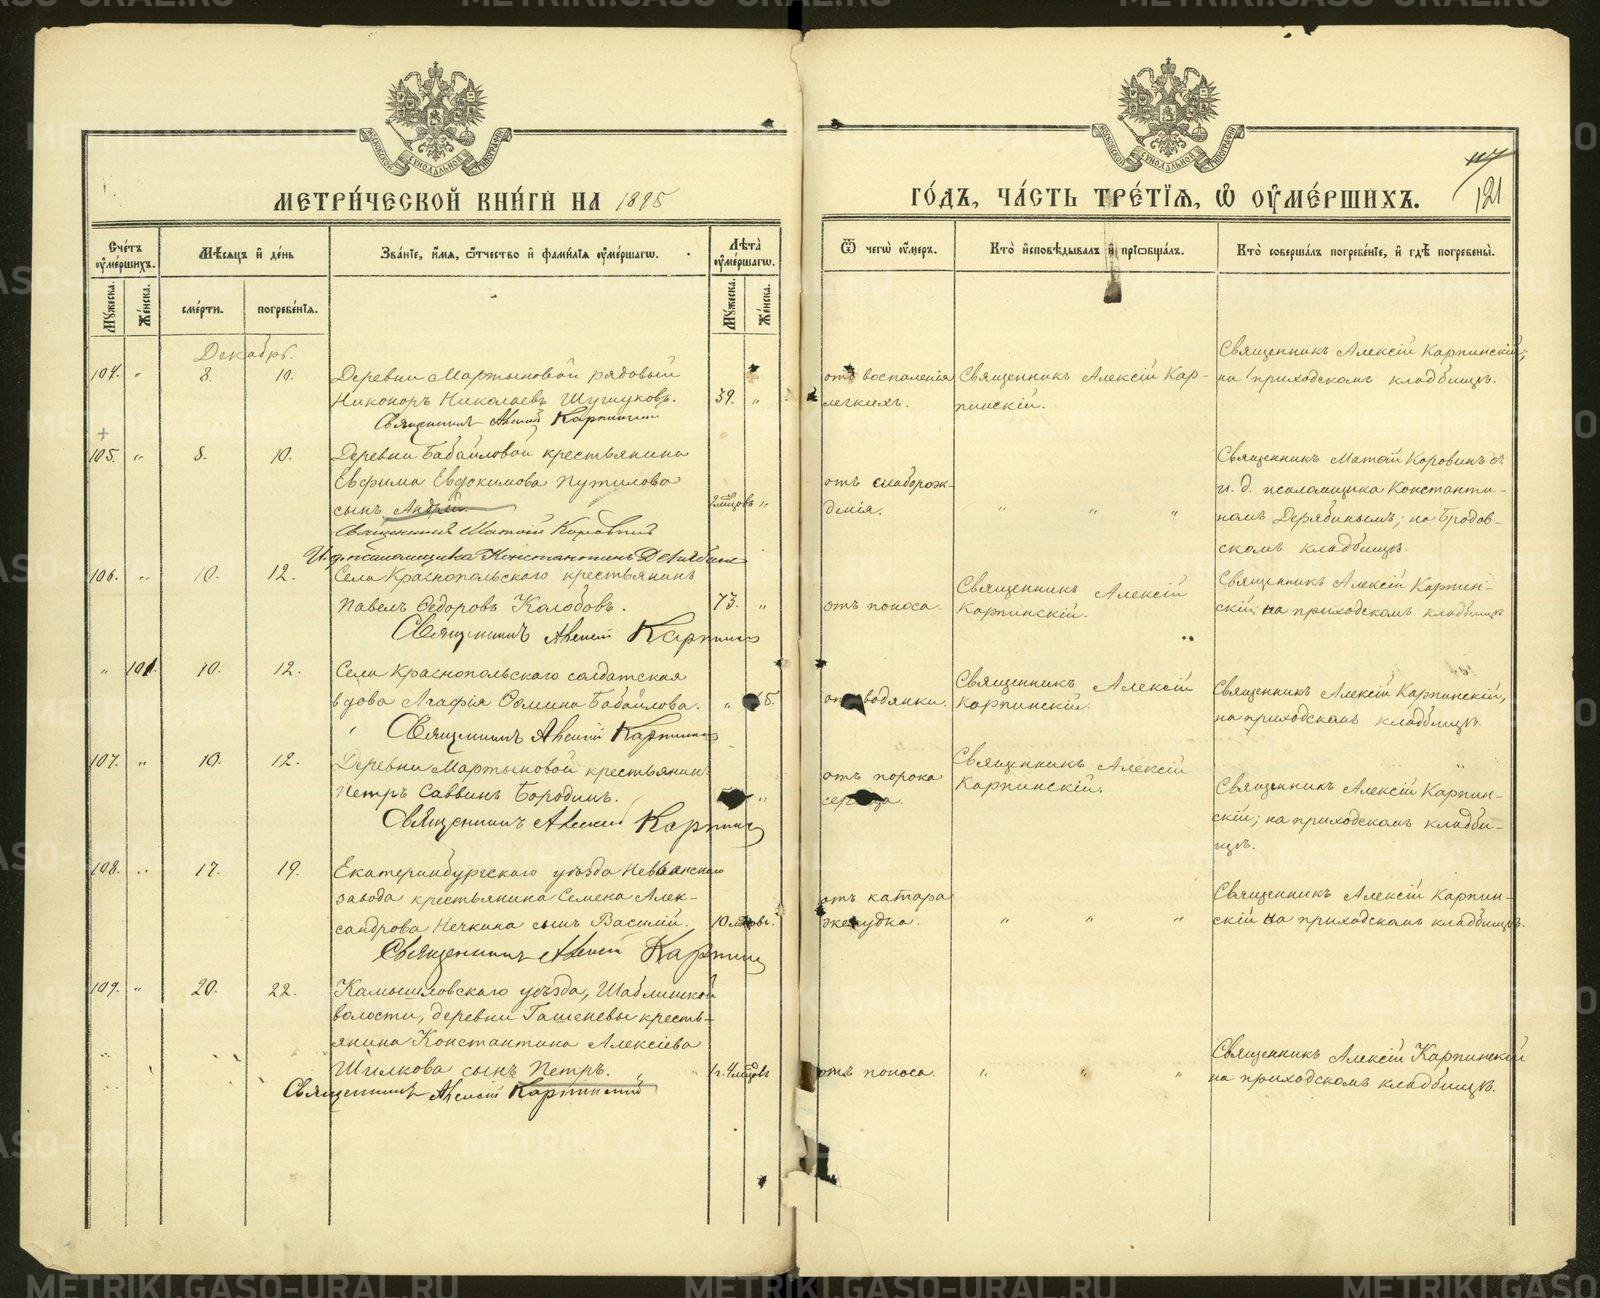 МЕТРИ́ЧЕСКОЙ КНИ́ГИ НА 1895
ГО́ДЪ, ЧА́СТЬ ТРЕ́ТІѦ, Ѡ ОУ҆МЕ́РШИХЪ.
121
Сче́тъ оу҆ме́ршихъ.
Мꙋ́жеска.
Же́нска.
Мѣ́сяцъ и҆ де́нь
сме́рти.
погребе́нїѧ.
Зва́нїе, и҆́мѧ, ѻ҆́тчество и҆ фами́лїѧ оу҆ме́ршагѡ.
Лѣ́та оу҆ме́ршагѡ.
Мꙋ́жеска.
Же́нска.
Ѿ чегѡ̀ оу҆́меръ.
Кто̀ и҆сповѣ́дывалъ и҆ прїѡбща́лъ.
Кто̀ соверша́лъ погребе́нїе, и҆ гдѣ̀ погребены̀.
Декабрь.
104. " 8. 10. Деревни Мартыновой рядовый
Никоноръ Николаевъ Шушуковъ. 39. "
Священникъ Алексій Карпинскій
отъ воспаленія
легкихъ.
Священникъ Алексій Кар-
пинскій.
Священникъ Алексій Карпинскій;
на приходскомъ кладбищѣ.
105. " 8. 10. Деревни Бабайловой крестьянина
Евфима Евдокимова Путилова
сынъ Андрей. "
Священникъ Матѳій Коровинъ
И. д. псаломщика Константинъ Дерябинъ
отъ слаборож-
денія. " " "
Священникъ Матѳій Коровинъ съ
и. д. псаломщика Константи-
номъ Дерябинымъ; на Бродов-
скомъ кладбищѣ.
106. " 10. 12. Села Краснопольскаго крестьянинъ
Павелъ Ѳедоровъ Колобовъ. 73. "
Священникъ Алексій Карпинс
отъ поноса.
Священникъ Алексій
Карпинскій.
Священникъ Алексій Карпин-
скій; на приходскомъ кладбищѣ
" 101. 10. 12. Села Краснопольскаго солдатская
вдова Агафія Ѳомина Бабайлова. " 5.
Священникъ Алексій Карпинск
водянки.
Священникъ Алексій
Карпинскій.
Священникъ Алексій Карпинскій,
на приходскомъ кладбищѣ.
107. " 10. 12. Деревни Мартыновой крестьянинъ
Петръ Саввинъ Бородинъ. "
Священникъ Алексій Карпинс
отъ порока
сердца.
Священникъ Алексій
Карпинскій.
Священникъ Алексій Карпин-
скій; на приходскомъ кладби-
щѣ.
108. " 17. 19. Екатеринбургскаго уѣзда Невьянскаго
завода крестьянина Семена Алек-
сандрова Нечкина сынъ Василій.
Священникъ Алексій Карпинс
отъ катара
желудка. " " "
Священникъ Алексій Карпин-
скій на приходскомъ кладбищѣ.
109. " 20. 22. Камышловскаго уѣзда, Шаблинской
волости, деревни Ташеневы кресть-
янина Константина Алексіева
Шилкова сынъ Петръ. 1 г. 4 мѣсцвъ
Священникъ Алексій Карпинскій
отъ поноса. " " "
Священникъ Алексій Карпинскій
на приходскомъ кладбищѣ.
METRIKI.GASO-URAL.RU